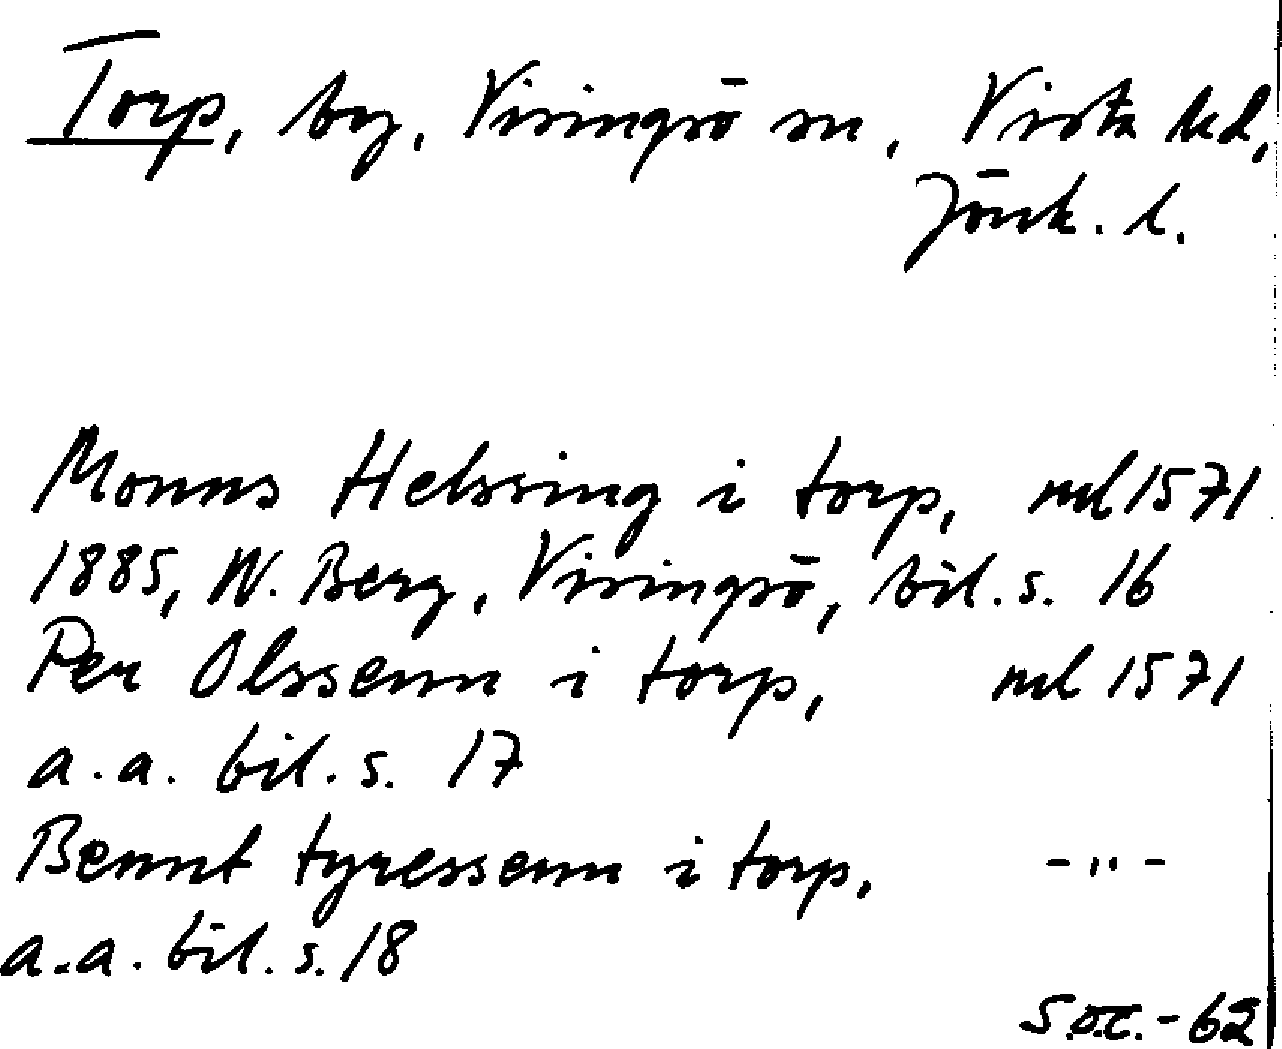 Torp, by, Visingsö sn, Vista hd,
Jönk. l.
Monns Helssing i torp, ml 1571
1885, W. Berg, Visingsö, bil. s. 16
Per Olssenn i torp, ml 1571
a.a. bil. s. 17
Bennt tyressenn i torp, -"-
a.a. bil. s. 18
S.o.c. -62